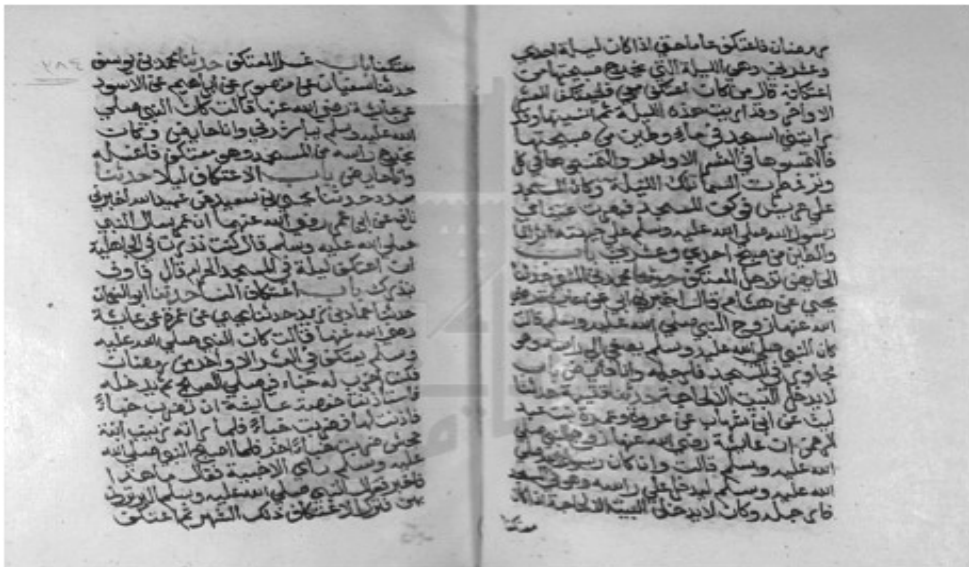 رمضان فاعتكف عاما حتى اذا كان ليلة احدى
وعشرين وهي الليلة التي يخرج صبيحتها من
اعتكافه قال من كان اعتكف معي فليعتكف العشر
الاواخر وقد اريت هذه الليلة ثم انسيتها وقد
رايتني اسجد في ماء وطين من صبيحتها
فالتمسوها في العشر الاواخر والتمسوها في كل
وتر فمطرت السماء تلك الليلة وكان المسجد
على عريش فوكف المسجد فبصرت عيناي
رسول الله صلى الله عليه وسلم على جبهته اثر الماء
والطين من صبح احدى وعشرين باب
الحائض ترجل المعتكف حدثنا محمد بن المثنى حدثنا
يحيى عن هشام قال اخبرني ابي عن عائشة رضي
الله عنها زوج النبي صلى الله عليه وسلم قالت
كان النبي صلى الله عليه وسلم يصغي الي راسه وهو
مجاور في المسجد فارجله وانا حائض باب
لا يدخل البيت الا لحاجة حدثنا قتيبة حدثنا
ليث عن ابن شهاب عن عروة وعمرة بنت عبد
الرحمن ان عائشة رضي الله عنها زوج النبي صلى
الله عليه وسلم قالت وان كان رسول الله صلى
الله عليه وسلم ليدخل علي راسه وهو في المسجد
فارجله وكان لا يدخل البيت الا لحاجة اذا كان
معتكفا
٣٨٤
معتكفا باب غسل المعتكف حدثنا محمد بن يوسف
حدثنا سفيان عن منصور عن ابراهيم عن الاسود
عن عائشة رضي الله عنها قالت كان النبي صلى
الله عليه وسلم يباشرني وانا حائض وكان
يخرج راسه من المسجد وهو معتكف فاغسله
وانا حائض باب الاعتكاف ليلا حدثنا
مسدد حدثنا يحيى بن سعيد عن عبيد الله اخبرني
نافع عن ابن عمر رضي الله عنهما ان عمر سال النبي
صلى الله عليه وسلم قال كنت نذرت في الجاهلية
ان اعتكف ليلة في المسجد الحرام قال فاوف
بنذرك باب اعتكاف النسا حدثنا ابو النعمان
حدثنا حماد بن زيد حدثنا يحيى عن عمرة عن عائشة
رضي الله عنها قالت كان النبي صلى الله عليه
وسلم يعتكف في العشر الاواخر من رمضان
فكنت اضرب له خباء فيصلي الصبح ثم يدخله
فاستاذنت حفصة عائشة ان تضرب خباءً
فاذنت لها فضربت خباءً فلما راته زينب ابنة
جحش ضربت خباءً اخر فلما اصبح النبي صلى الله
عليه وسلم راى الاخبية فقال ما هذا
فاخبر فقال النبي صلى الله عليه وسلم البر ترون
بهن فترك الاعتكاف ذلك الشهر ثم اعتكف